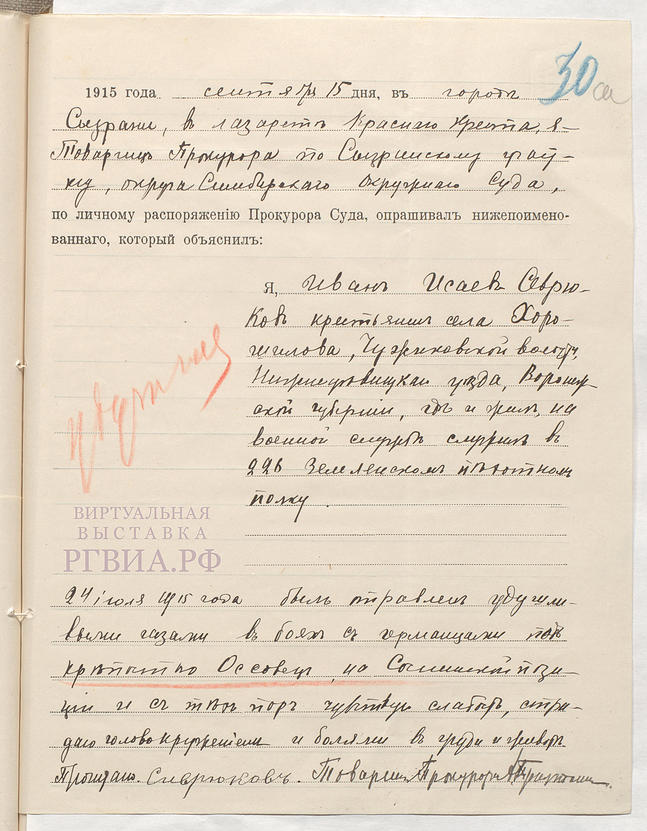 30
1915 года сентября 15 дня, въ городѣ
Сызрани, въ лазаретѣ Краснаго Креста, я
Товарищъ Прокурора по Сызранскому участ-
ку, округа Симбирскаго Окружнаго Суда,
по личному распоряженію Прокурора Суда, опрашивалъ нижепоимено-
ваннаго, который объяснилъ:
Я, Иванъ Исаевъ Севрю-
ковъ крестьянинъ села Хоро-
шилова,
Нижнедѣвицкаго уѣзда, Воронеж-
ской губерніи, гдѣ и жилъ, на
военной службѣ служилъ въ
226 Землянскомъ пѣхотномъ
полку.
удушливые
ВИРТУАЛЬНАЯ
ВЫСТАВКА
РГВИА.РФ
24 іюля 1915 года былъ отравленъ удушли-
выми газами въ бояхъ съ германцами подъ
крѣпостью Оссовецъ, на Сосненской пози-
ціи и съ тѣхъ поръ чувствую слабость, стра-
даю головокруженіемъ и болями въ груди и животѣ.
Прочитано. Севрюковъ. Товарищъ Прокурора